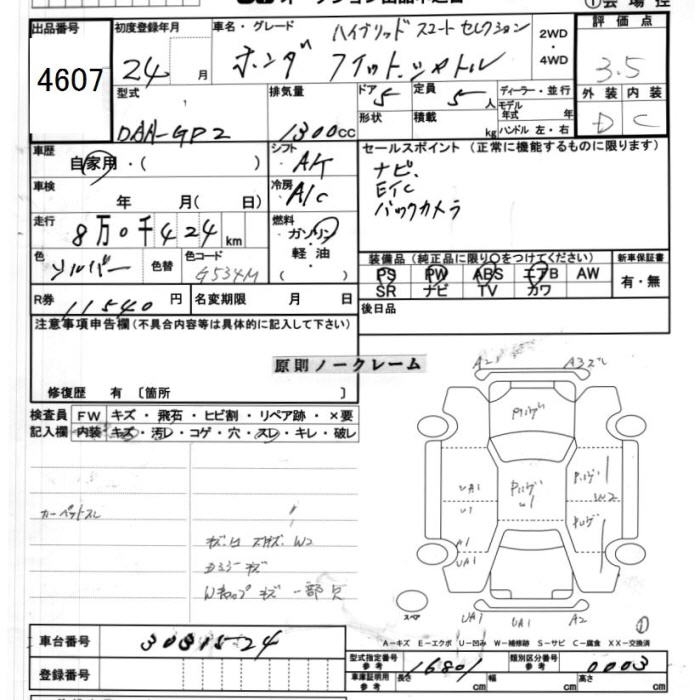 出品番号
4607
初度登録年月
24 月
車名・グレード
ハイブリッド スマートセレクション
ホンダ フィットシャトル
2WD
・
4WD
評価点
3.5
外装 内装
D C
型式
DAA-GP2
排気量
1300cc
ドア 5
形状
定員 5 人
積載 kg
ディーラー・並行
モデル年式 年
ハンドル 左・右
車歴
自家用・( )
シフト
AT
車検
年 月( 日)
冷房
A/C
セールスポイント(正常に機能するものに限ります)
ナビ.
ETC
バックカメラ
走行
8万0千424 km
燃料
ガソリン
軽油
( )
色
シルバー
色替
色コード
G534M
装備品(純正品に限り○をつけてください)
PS PW ABS エアB AW
SR ナビ TV カワ
新車保証書
有・無
R券
11540 円
名変期限 月 日
後日品
注意事項申告欄(不具合内容等は具体的に記入して下さい)
原則ノークレーム
修復歴 有 〔箇所 〕
検査員
記入欄
FW キズ・飛石・ヒビ割・リペア跡・×要
内装 キズ・汚レ・コゲ・穴・スレ・キレ・破レ
カーペットスレ
W2
一部欠
A2
A3
UA1
U1
A1
UA1
W2
UA1
UA1
A2
スペア
A-キズ E-エクボ U-凹み W-補修跡 S-サビ C-腐食 XX-交換済
車台番号
3031524
登録番号
型式指定番号
参考
16801
類別区分番号
参考
0003
車庫証明用
参考
長さ cm
幅 cm
高さ cm